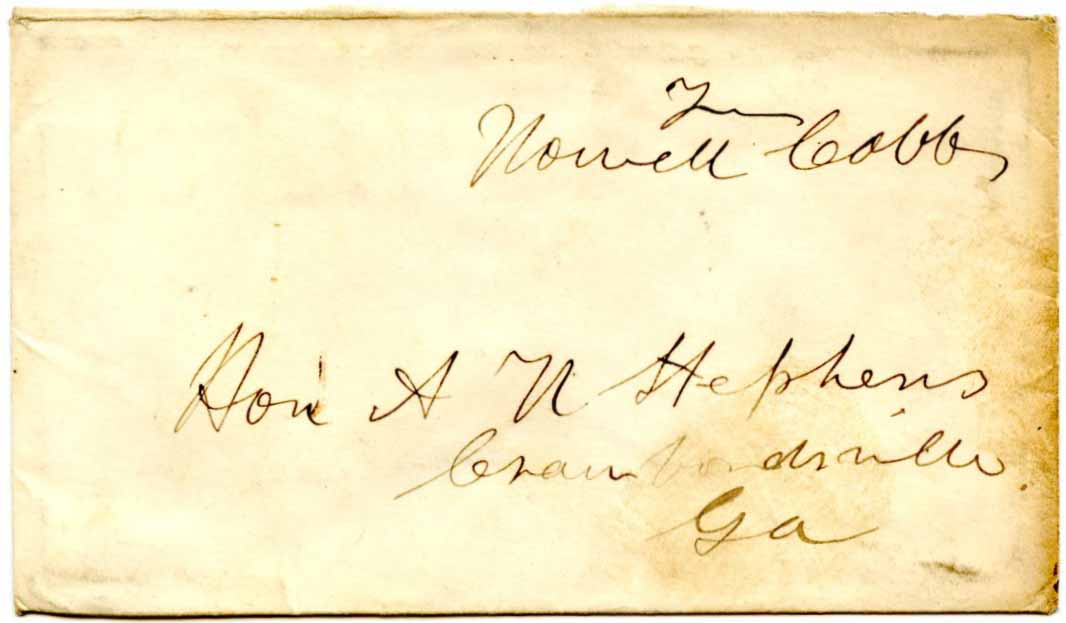 Fr
Howell Cobb
Hon A H Stephens
Crawfordsville
Ga